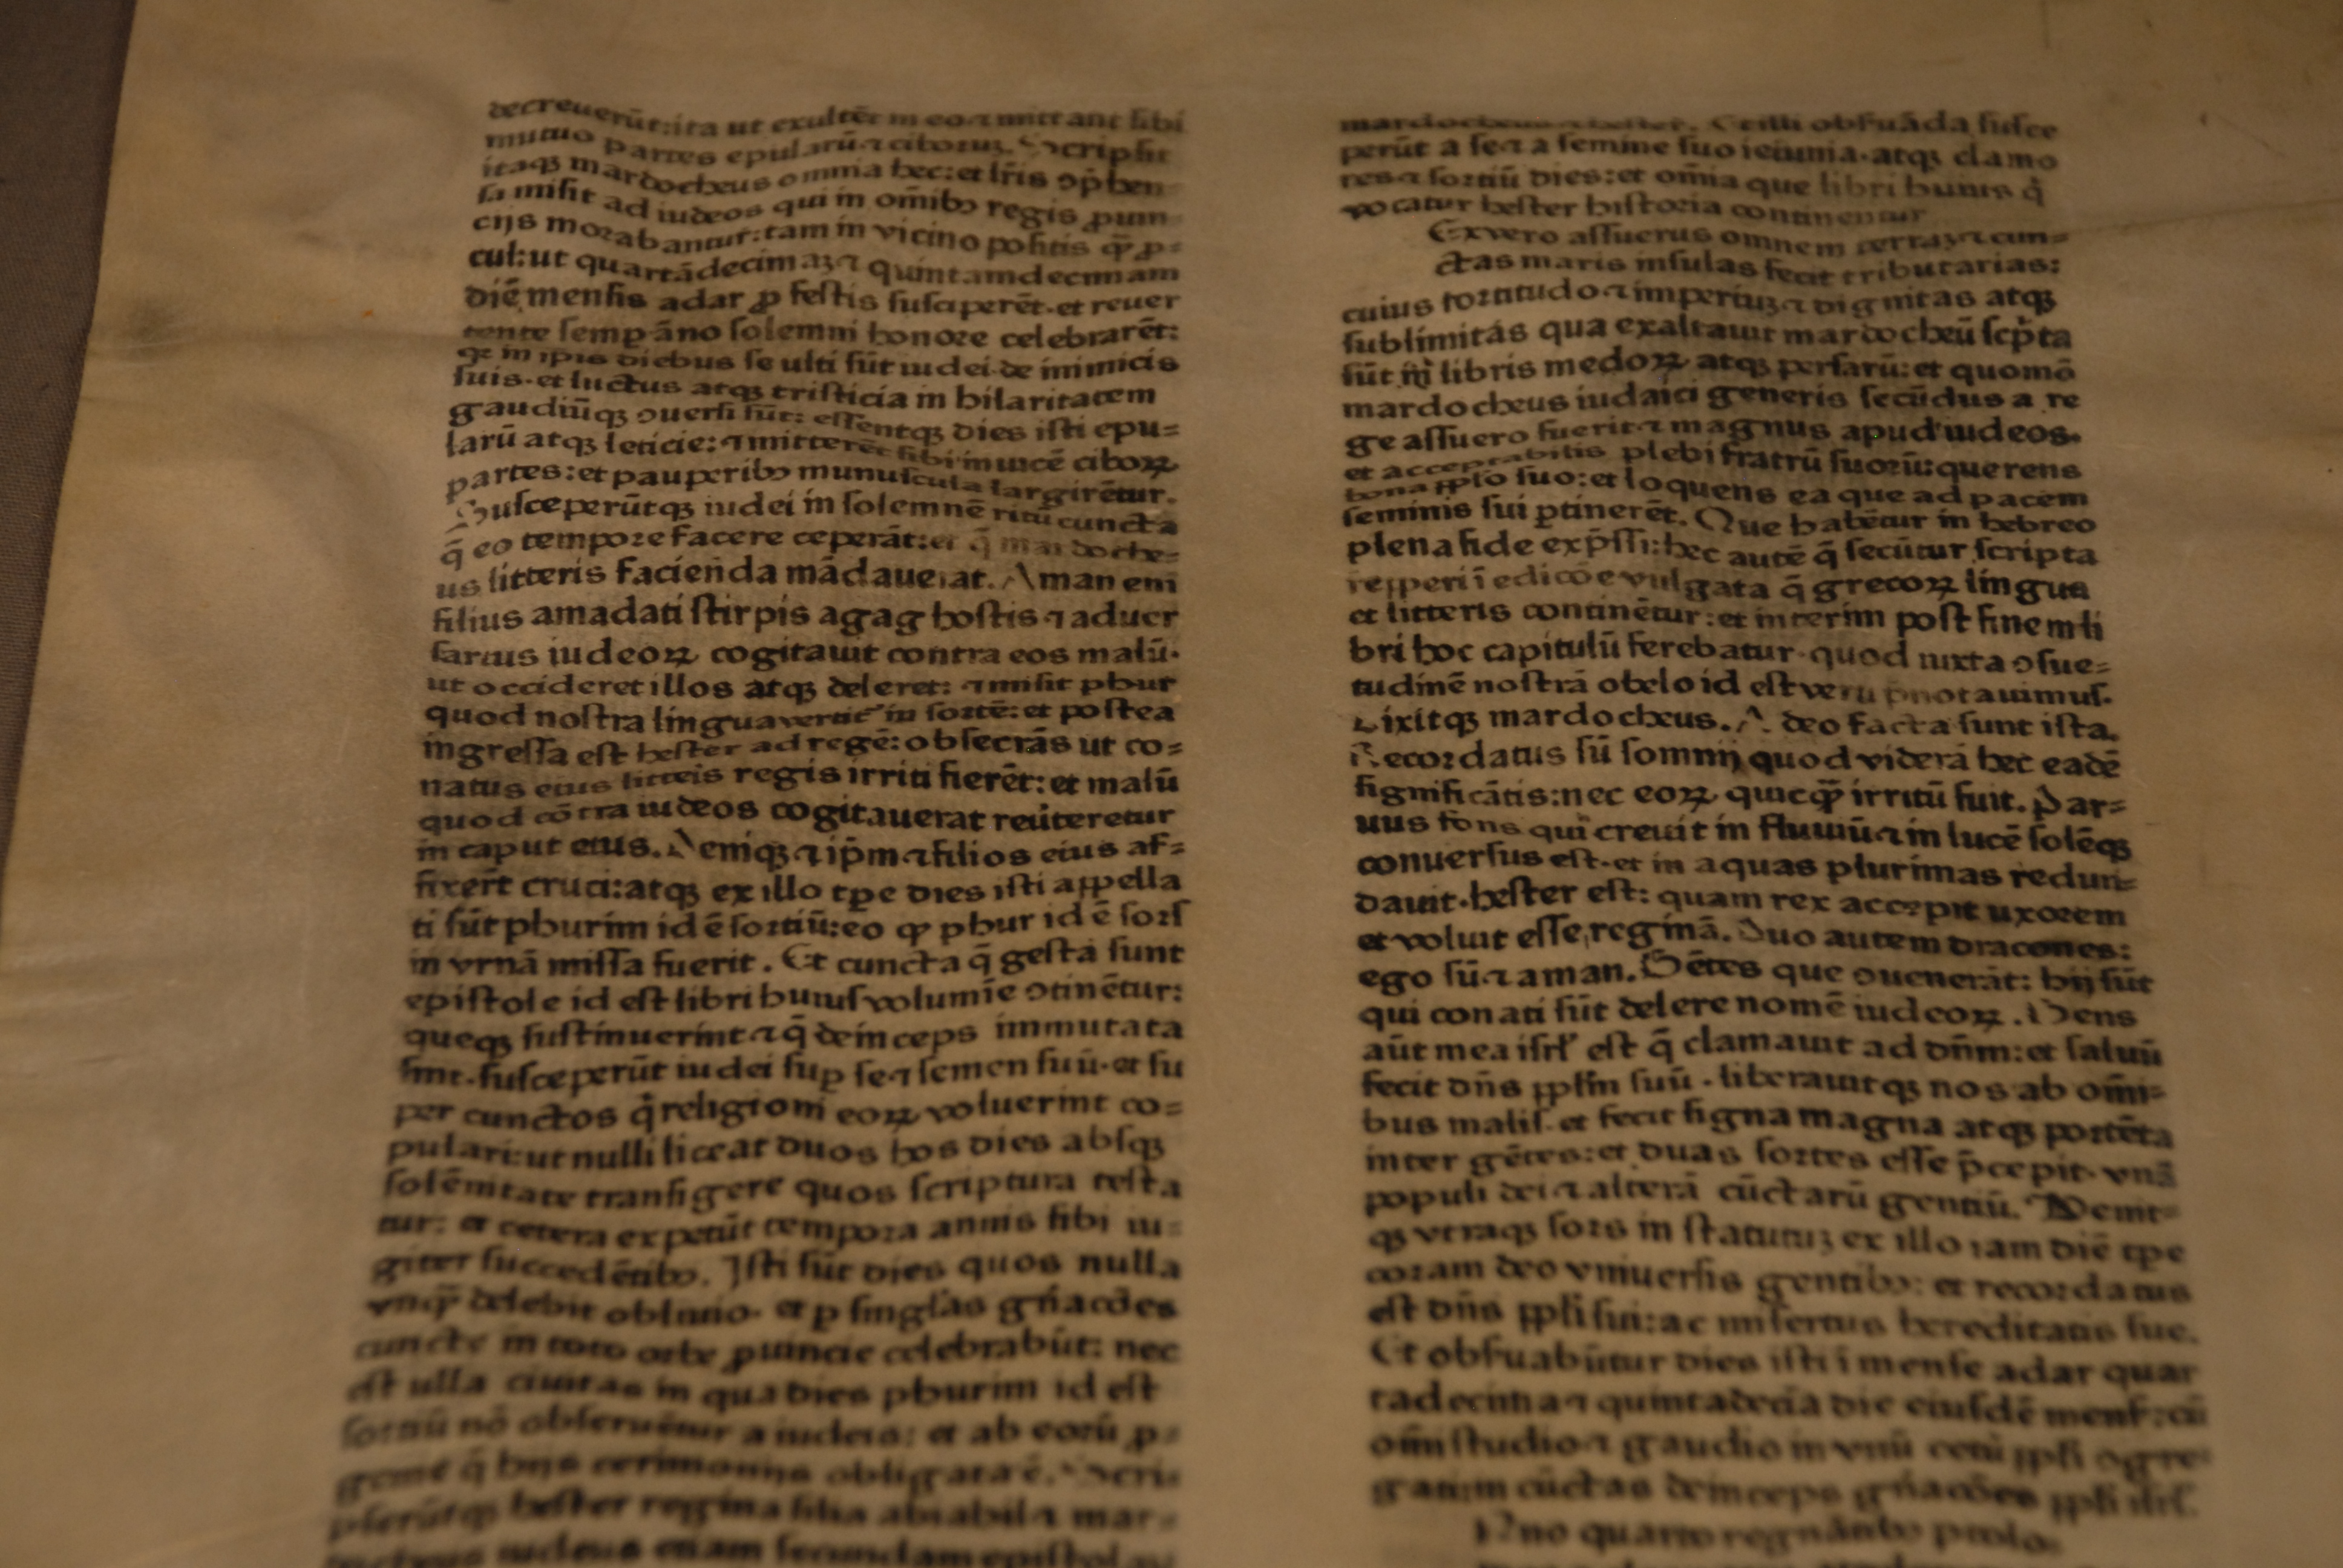 decreuerūt:ita ut exultēt in eo ⁊ mittant sibi
mutuo partes epularū ⁊ ciboꝝ. Scripsit
itaqꝫ mardocheus omnia hec: et lr̄is ꝯp̄hen
sa misit ad iudeos qui in om̄ibꝰ regis ꝓuin
cijs morabantur: tam in vicino positis qꝫ̄ ꝓ=
cul: ut quartādecimaꝫ ⁊ quintamdecimam
diē mensis adar ꝓ festis susciperēt. et reuer
tente semꝑ āno solemni honore celebrarēt:
qꝛ in ipis diebus se ulti sūt iudei de inimicis
suis. et luctus atqꝫ tristicia in hilaritatem
gaudiūqꝫ ꝯuersi sūt: essentqꝫ dies isti epu=
larū atqꝫ leticie: ⁊ mitterēt sibi inuicē ciboꝝ
partes: et pauperibꝰ munuscula largirētur.
Susceperūtqꝫ iudei in solemnē ritū cuncta
q̄ eo tempore facere ceperāt: et q̄ mardoche=
us litteris facienda mādauerat. Aman eni
filius amadati stirpis agag hostis ⁊ aduer
sarius iudeoꝝ cogitauit contra eos malū.
ut occideret illos atqꝫ deleret: ⁊ misit phur
quod nostra lingua vertit' in sortē: et postea
ingressa est hester ad regē: obsecrās ut co=
natus eius litteis regis irriti fierēt: et malū
quod cōtra iudeos cogitauerat reūteretur
in caput eius. Deniqꝫ ⁊ ip̄m ⁊ filios eius af=
fixerūt cruci: atqꝫ ex illo tꝑe dies isti appella
ti sūt phurim id ē sortiū: eo ꝙ phur id ē sors
in vrnā missa fuerit. Et cuncta q̄ gesta sunt
epistole id est libri huius volumīe ꝯtinētur:
queqꝫ sustinuerint ⁊ q̄ deinceps immutata
sint. susceperūt iudei suꝑ se ⁊ semen suū. et su
per cunctos q̇ religioni eoꝝ voluerint co=
pulari: ut nulli liceat duos hos dies absqꝫ
solēnitate transigere quos scriptura testa
tur: et cetera expetūt tempora annis sibi iu=
giter succedētibꝰ. Isti sūt dies quos nulla
vnqꝫ̄ delebit obliuio. et ꝑ singl'as gn̄acōes
cuncte in toto orbe ꝓuincie celebrabūt: nec
est ulla ciuitas in qua dies phurim id est
sortiū nō obseruētur a iudeis: et ab eorū ꝓ=
genie q̄ hijs cerimonijs obligata ē. Scri
pserūtqꝫ hester regina filia abiahil ⁊ mar=
docheus iudeus etiam secundam epistolaꝫ
mardocheus ⁊ hester. Et illi obsuāda susce
perūt a se ⁊ a semine suo ieiunia. atqꝫ clamo
res ⁊ sortiū dies: et om̄ia que libri huius q̇
vocatur hester historia continentur
Ex vero assuerus omnem terraꝫ ⁊ cun=
ctas maris insulas fecit tributarias:
cuius fortitudo ⁊ imperiuꝫ ⁊ dignitas atqꝫ
sublimitas qua exaltauit mardocheū scp̄ta
sūt in libris medoꝝ atqꝫ persarū: et quomō
mardocheus iudaici generis secūdus a re
ge assuero fuerit ⁊ magnus apud iudeos.
et acceptabilis plebi fratrū suorū: querens
bona ipso suo: et loquens ea que ad pacem
seminis sui ꝑtinerēt. Que habētur in hebreo
plena fide exp̄ssi: hec autē q̄ secūtur scripta
repperi ī edicōe vulgata q̄ grecoꝝ lingua
et litteris continētur: et interim post finem li
bri hoc capitulū ferebatur. quod iuxta ꝯsue=
tudinē nostrā obelo id est veru p̄notauimus.
Dixitqꝫ mardocheus. A deo facta sunt ista.
Recordatus sū somnij quod viderā hec eadē
significātis: nec eoꝝ quicqꝫ̄ irritū fuit. Par=
uus fons qui creuit in fluuiū ⁊ in lucē solēqꝫ
conuersus est. et in aquas plurimas redun=
dauit. hester est: quam rex accepit uxorem
et voluit esse reginā. Duo autem dracones:
ego sū ⁊ aman. Gētes que ꝯuenerāt: hij sūt
qui conati sūt delere nomē iudeoꝝ. Gens
aūt mea isrl' est q̄ clamauit ad dn̄m: et saluū
fecit dn̄s pplm̄ suū. liberauitqꝫ nos ab om̄i=
bus malis. et fecit signa magna atqꝫ portēta
inter gētes: et duas sortes esse p̄cepit. vnā
populi dei ⁊ alterā cūctarū gentiū. Venit=
qꝫ vtraqꝫ sors in statutuꝫ ex illo iam diē tꝑe
coram deo vniuersis gentibꝰ: et recordatus
est dn̄s ppli sui: ac misertus hereditatis sue.
Et obsuabūtur dies isti ī mense adar quar
tadecima ⁊ quintadecīa die eiusdē mensꝭ: cū
om̄i studio ⁊ gaudio in vnū cetū ppli ꝯgre=
gatum cūctas deinceps gn̄acōes ppli isrl'.
Nno quarto regnātibꝰ ptolo